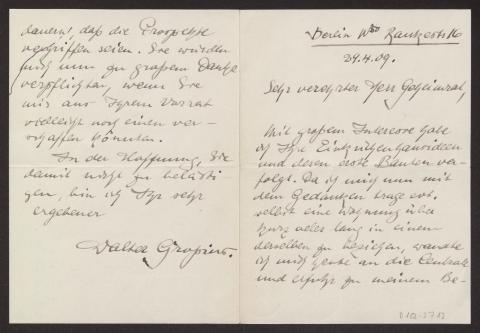 Berlin W50 Rankestr 16
29.4.09.
Sehr verehrter Herr Geheimrat,
Mit großem Interesse habe
ich Ihre Einküchenhausideen
und deren erste Bauten ver-
folgt. Da ich mich nun mit
dem Gedanken trage evt.
selbst eine Wohnung über
kurz oder lang in einem
derselben zu beziehen, wandte
ich mich heute an die Centrale
und erfuhr zu meinem Be-
dauern, daß die Prospekte
vergriffen seien. Sie würden
mich nun zu großem Danke
verpflichten, wenn Sie
mir aus Ihrem Vorrat
vielleicht noch einen ver-
schaffen könnten.
In der Hoffnung, Sie
damit nicht zu belästi-
gen, bin ich Ihr sehr
ergebener
Walter Gropius.